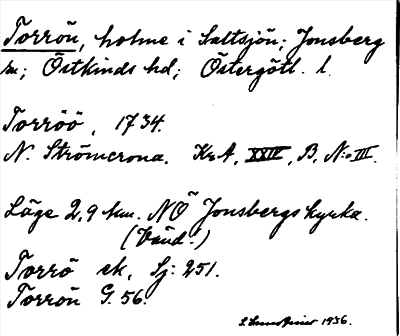 Torrön, holme i Saltsjön; Jonsberg
sn; Östkinds hd; Östergötl. l.
Torröö, 1734.
N. Strömcrona. KrA, XXIV, B, N:o III.
Läge 2,9 km. NÖ Jonsbergs kyrka.
(Vänd!)
Torrö ek, Sj: 251.
Torrön G. 56.
1936.